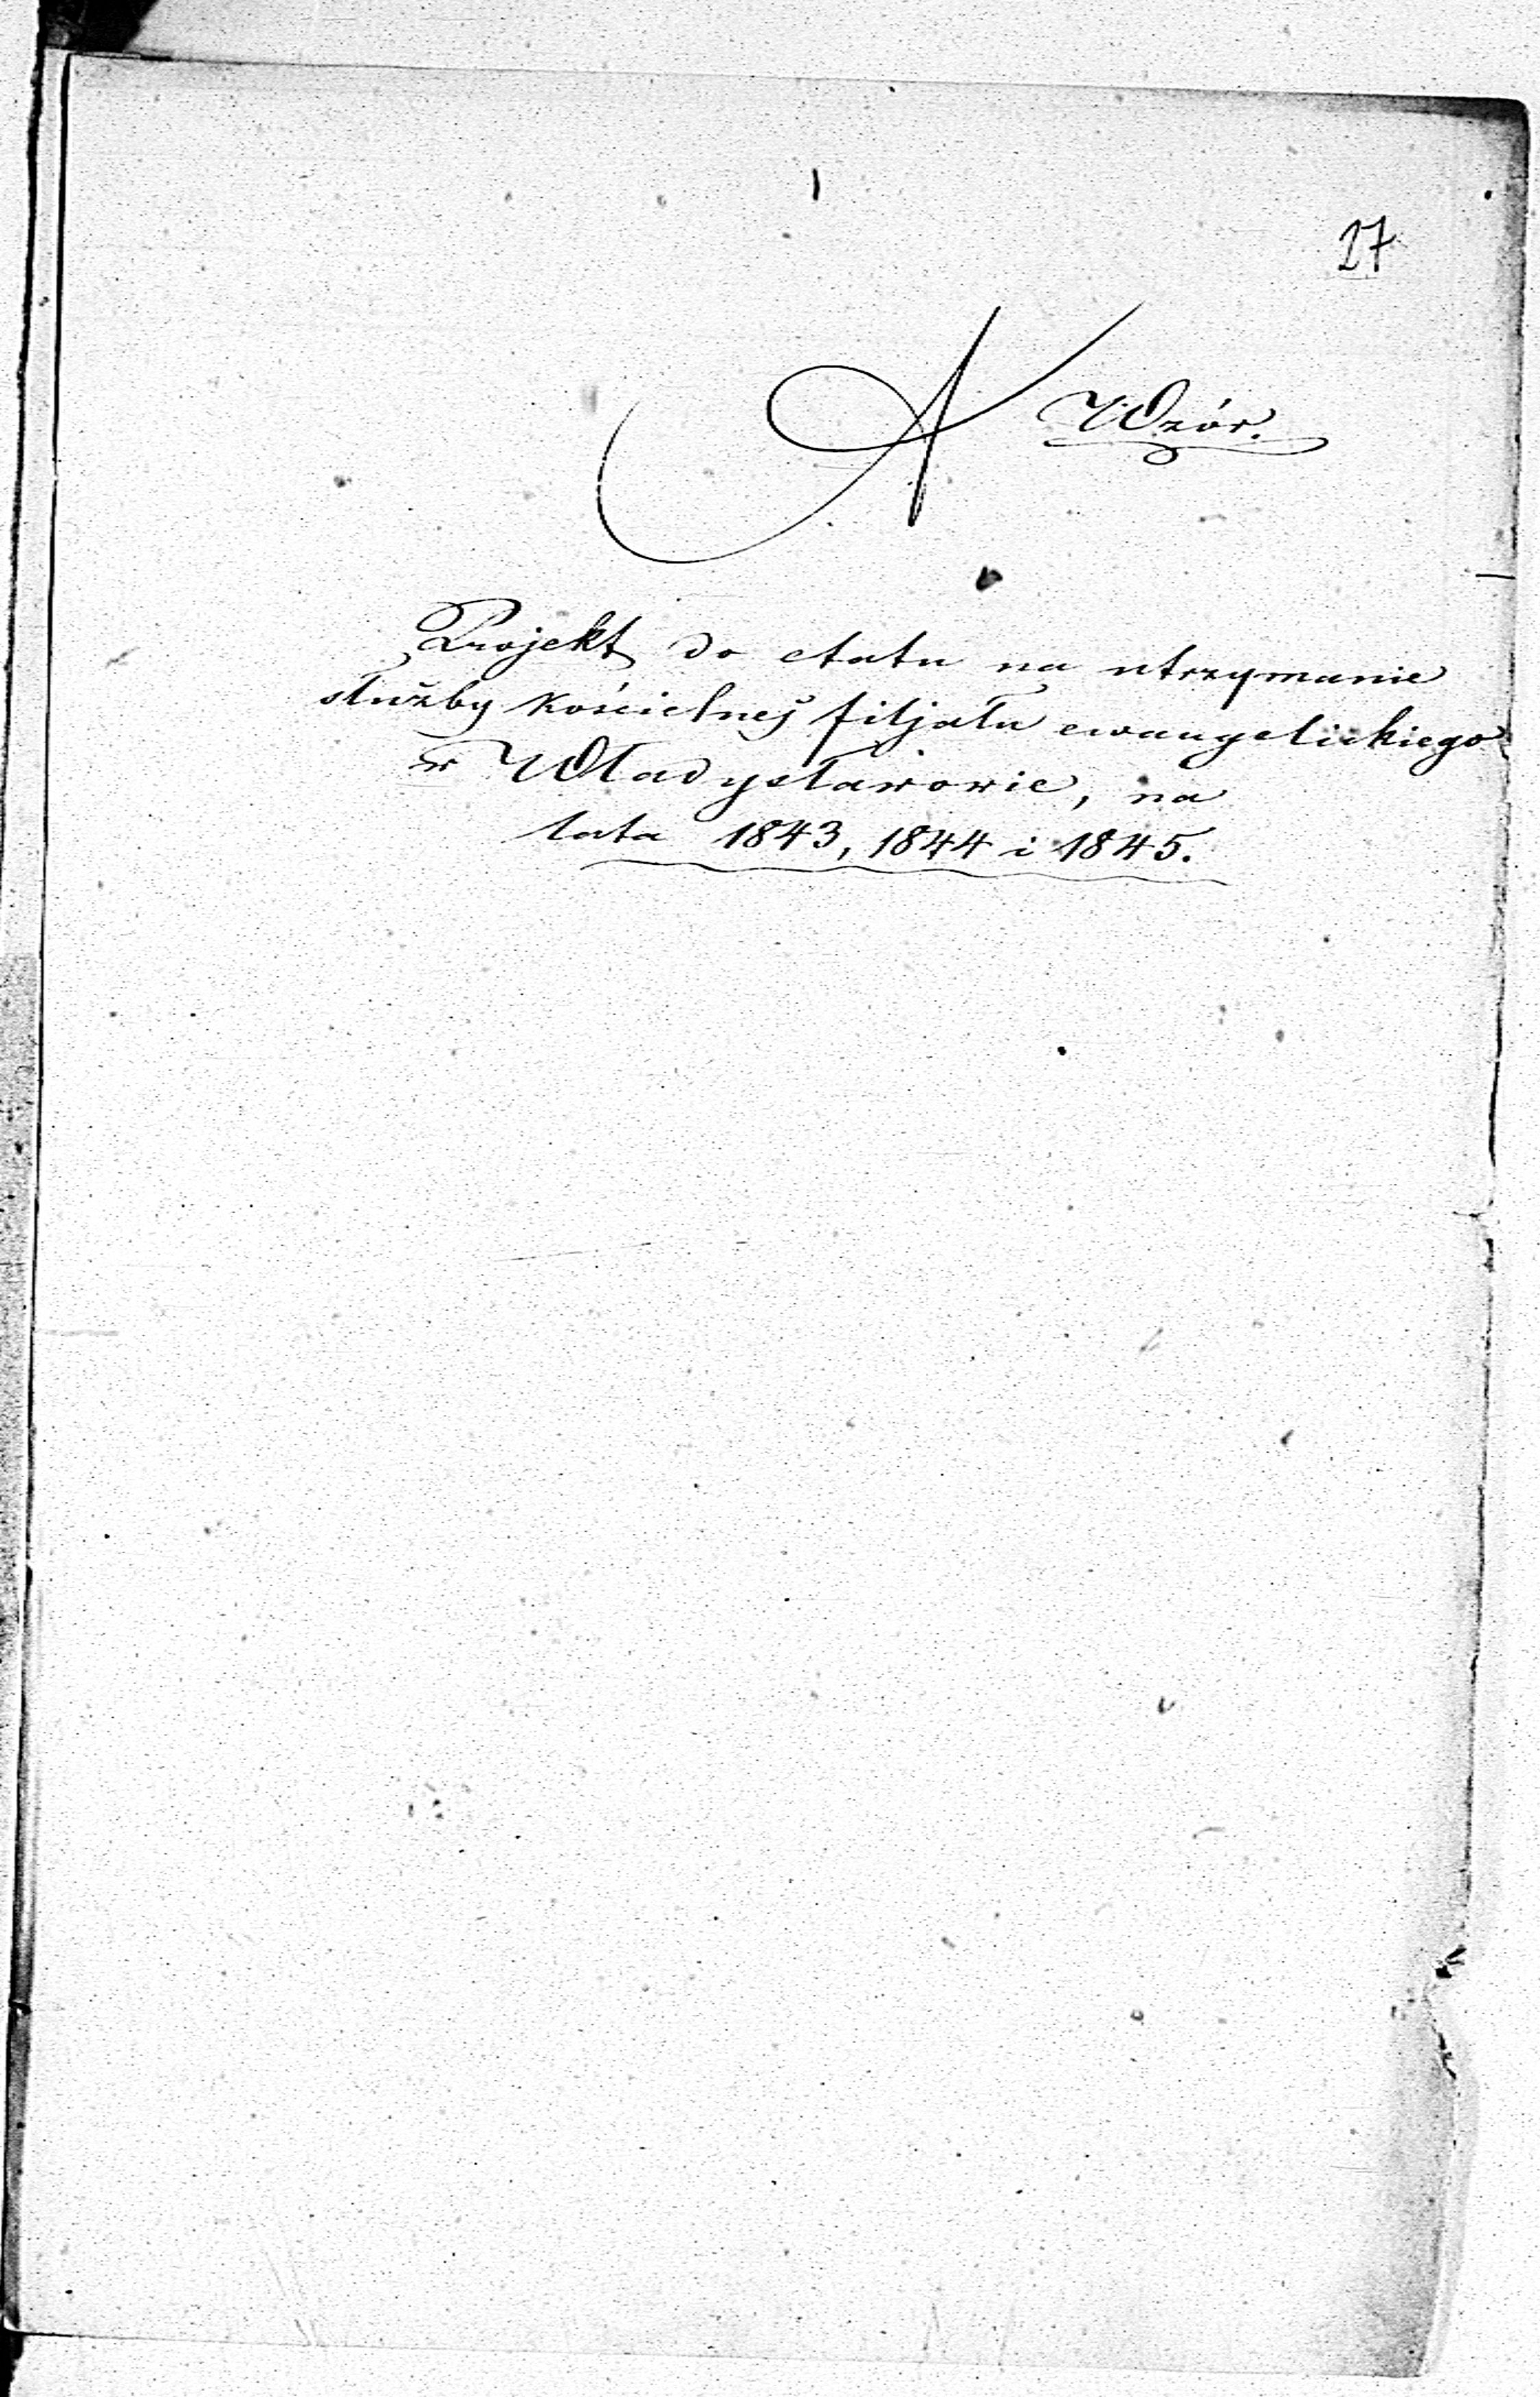 27
A Wzór.
Projekt do etatu na utrzymanie
służby kościelnej filjału ewangelickiego
w Władysławowie, na
lata 1843, 1844 i 1845.